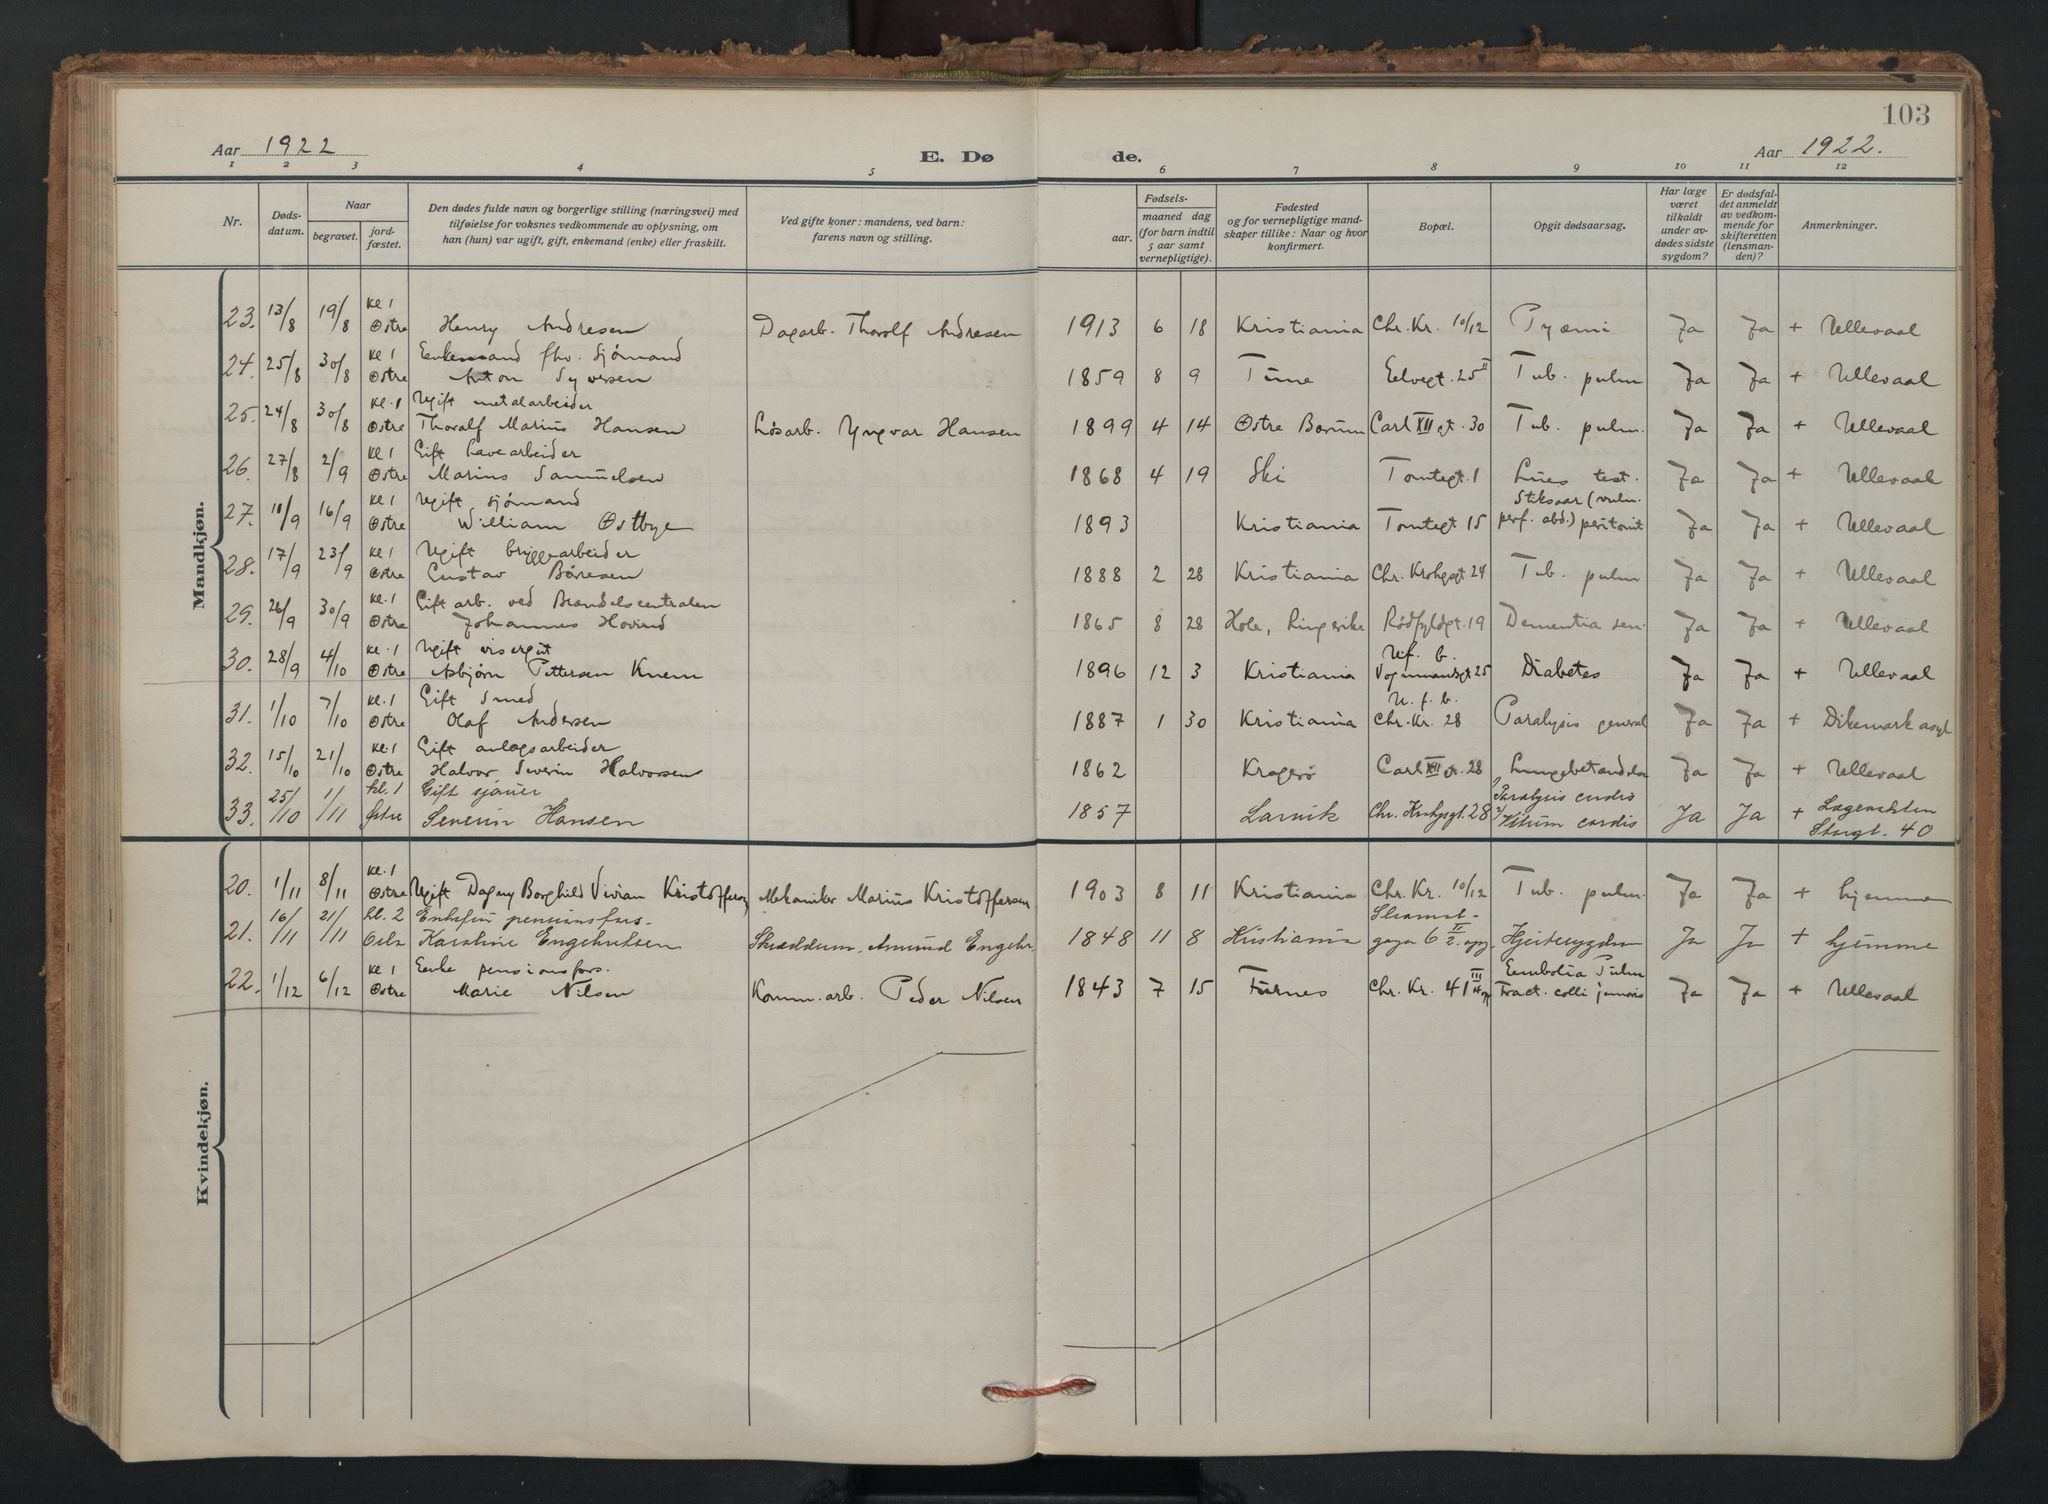 103
Aar 1922
E. Dø
de.
Aar 1922.
1 2 3 4 5 6 7 8 9 10 11 12
Nr.
Døds-datum.
Naar
begravet.
jord-fæstet.
Den dødes fulde navn og borgerlige stilling (næringsvei) med
tilføielse for voksnes vedkommende av oplysning, om
han (hun) var ugift, gift, enkemand (enke) eller fraskilt.
Ved gifte koner: mandens, ved barn:
farens navn og stilling.
Fødsels-
aar.
maaned dag
(for barn indtil
5 aar samt
vernepligtige).
Fødested
og for vernepligtige mand-
skaper tillike: Naar og hvor
konfirmert.
Bopæl.
Opgit dødsaarsag.
Har læge
været
tilkaldt
under av-
dødes sidste
sygdom?
Er dødsfal-
det anmeldt
av vedkom-
mende for
skifteretten
(lensman-
den)?
Anmerkninger.
Mandkjøn.
kl 1
23. 13/8 19/8 Østre Henry Andresen Dagarb. Thoralf Andresen 1913 6 18 Kristiania Chr. Kr. 10/12 Pyæmi Ja Ja + Ullevaal
kl 1 Enkemand fhv. sjømand
24. 25/8 30/8 Østre Anton Syversen 1859 8 9 Tune Eelvegt. 25 II Tub. pulm Ja Ja + Ullevaal
kl. 1 Ugift metalarbeider
25. 24/8 30/8 Østre Thoralf Marius Hansen Løsarb. Yngvar Hansen 1899 4 14 Østre Bærum Carl XII gt. 30 Tub. pulm. Ja Ja + Ullevaal
kl 1 Gift havearbeider
26. 27/8 2/9 Østre Marius Samuelsen 1868 4 19 Ski Tomtegt. 1 Lues test. Ja Ja + Ullevaal
kl 1 Ugift sjømand Stiksaar (vuln.
27. 10/9 16/9 Østre William Østbye 1893 Kristiania Tomtegt 15 perf. abd.) peritonit Ja Ja + Ullevaal
kl 1 Ugift bryggearbeider
28. 17/9 23/9 Østre Gustav Børresen 1888 2 28 Kristiania Chr. Krohgsgt 24 Tub. pulm Ja Ja + Ullevaal
kl. 1 Gift arb. ved Brændelscentralen
29. 26/9 30/9 Østre Johannes Hovind 1865 8 28 Hole, Ringerike Rødfyldgt. 19 Dementia sen. Ja Ja + Ullevaal
kl. 1 Ugift visergut U. f. b.
30. 28/9 4/10 Østre Asbjørn Pettersen Knem 1896 12 3 Kristiania Vognmandsgt 25 Diabetes Ja Ja + Ullevaal
kl. 1 Gift smed U. f. b.
31. 1/10 7/10 Østre Olaf Andersen 1887 1 30 Kristiania Chr. Kr. 28 Paralysis general Ja Ja + Dikemark asyl
kl. 1 Gift anlægsarbeider
32. 15/10 21/10 Østre Halvor Severin Halvorsen 1862 Kragerø Carl XII gt. 28 Lungebetændelse Ja Ja + Ullevaal
kl. 1 Gift sjauer Paralysis cordis
33. 25/10 1/11 Østre Severin Hansen 1857 Larvik Chr. Krohgsgt. 28 Vitium cordis Ja Ja + Lægevakten
Storgt. 40
Kvindekjøn.
kl. 1
20. 1/11 8/11 Østre Ugift Dagny Borghild Vivian Kristoffersen Mekaniker Marius Kristoffersen 1903 8 11 Kristiania Chr. Kr. 10/12 Tub. pulm. Ja Ja + hjemme
kl. 2 Enkefru pensionsfors.
21. 16/11 21/11 Oslo Karoline Engebretsen Skrædderm. Amund Engebr. 1848 11 8 Kristiania gaten 6 II 2. opg. Hjertesygdom Ja Ja + hjemme
kl 1 Enke pensionsfors. Eembolia Pulm
22. 1/12 6/12 Østre Marie Nilsen Komm. arb. Peder Nilsen 1843 7 15 Furnes Chr. Kr. 41 III Fract. colli femoris Ja Ja + Ullevaal